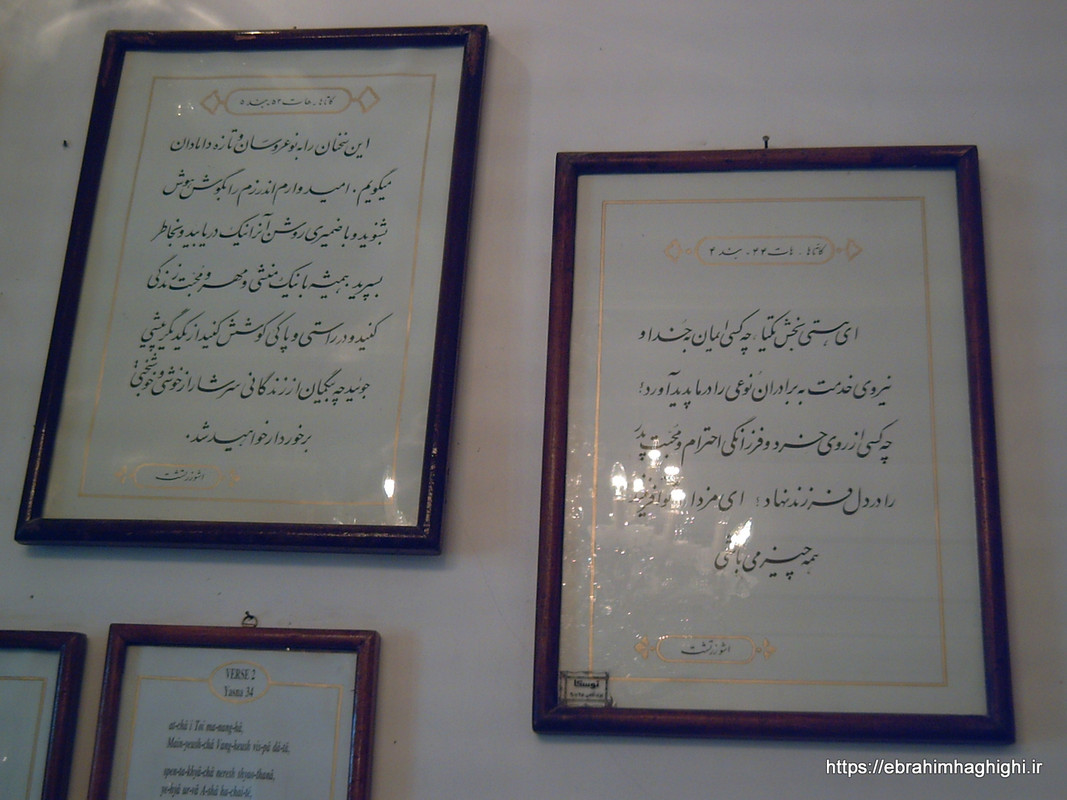 گاتاها - هات ۵۳ - بند ۵
این سخنان را به نوعروسان و تازه دامادان
میگویم، امیدوارم اندرزم را بگوش هوش
بشنوید و با ضمیری روشن آنرا نیک دریابید و بخاطر
بسپرید. همیشه با نیک منشی و مهر و محبت زندگی
کنید و در راستی و پاکی کوشش کنید از یکدیگر پیشی
جوئید چه بیگمان از زندگانی سرشار از خوشی و خوشبختی
برخوردار خواهید شد.
اشوزرتشت
گاتاها - هات ۴۴ - بند ۴
ای هستی بخش یکتا، چه کسی ایمان بخدا و
نیروی خدمت به برادران نوعی را در ما پدید آورد!
چه کسی از روی خرد و فرزانگی احترام و محبت پدر
را در دل فرزند نهاد؟ ای مزدا
همه چیز می باشی
اشوزرتشت
VERSE 2
Yasna 34
at-châ î Tôi ma-nang-hâ,
Main-yeush-châ Vang-heush vis-pâ dâ-tâ,
spen-ta-khyâ-châ neresh shyao-thanâ,
ye-hyâ ur-vâ A-shâ ha-chai-tê,
https://ebrahimhaghighi.ir